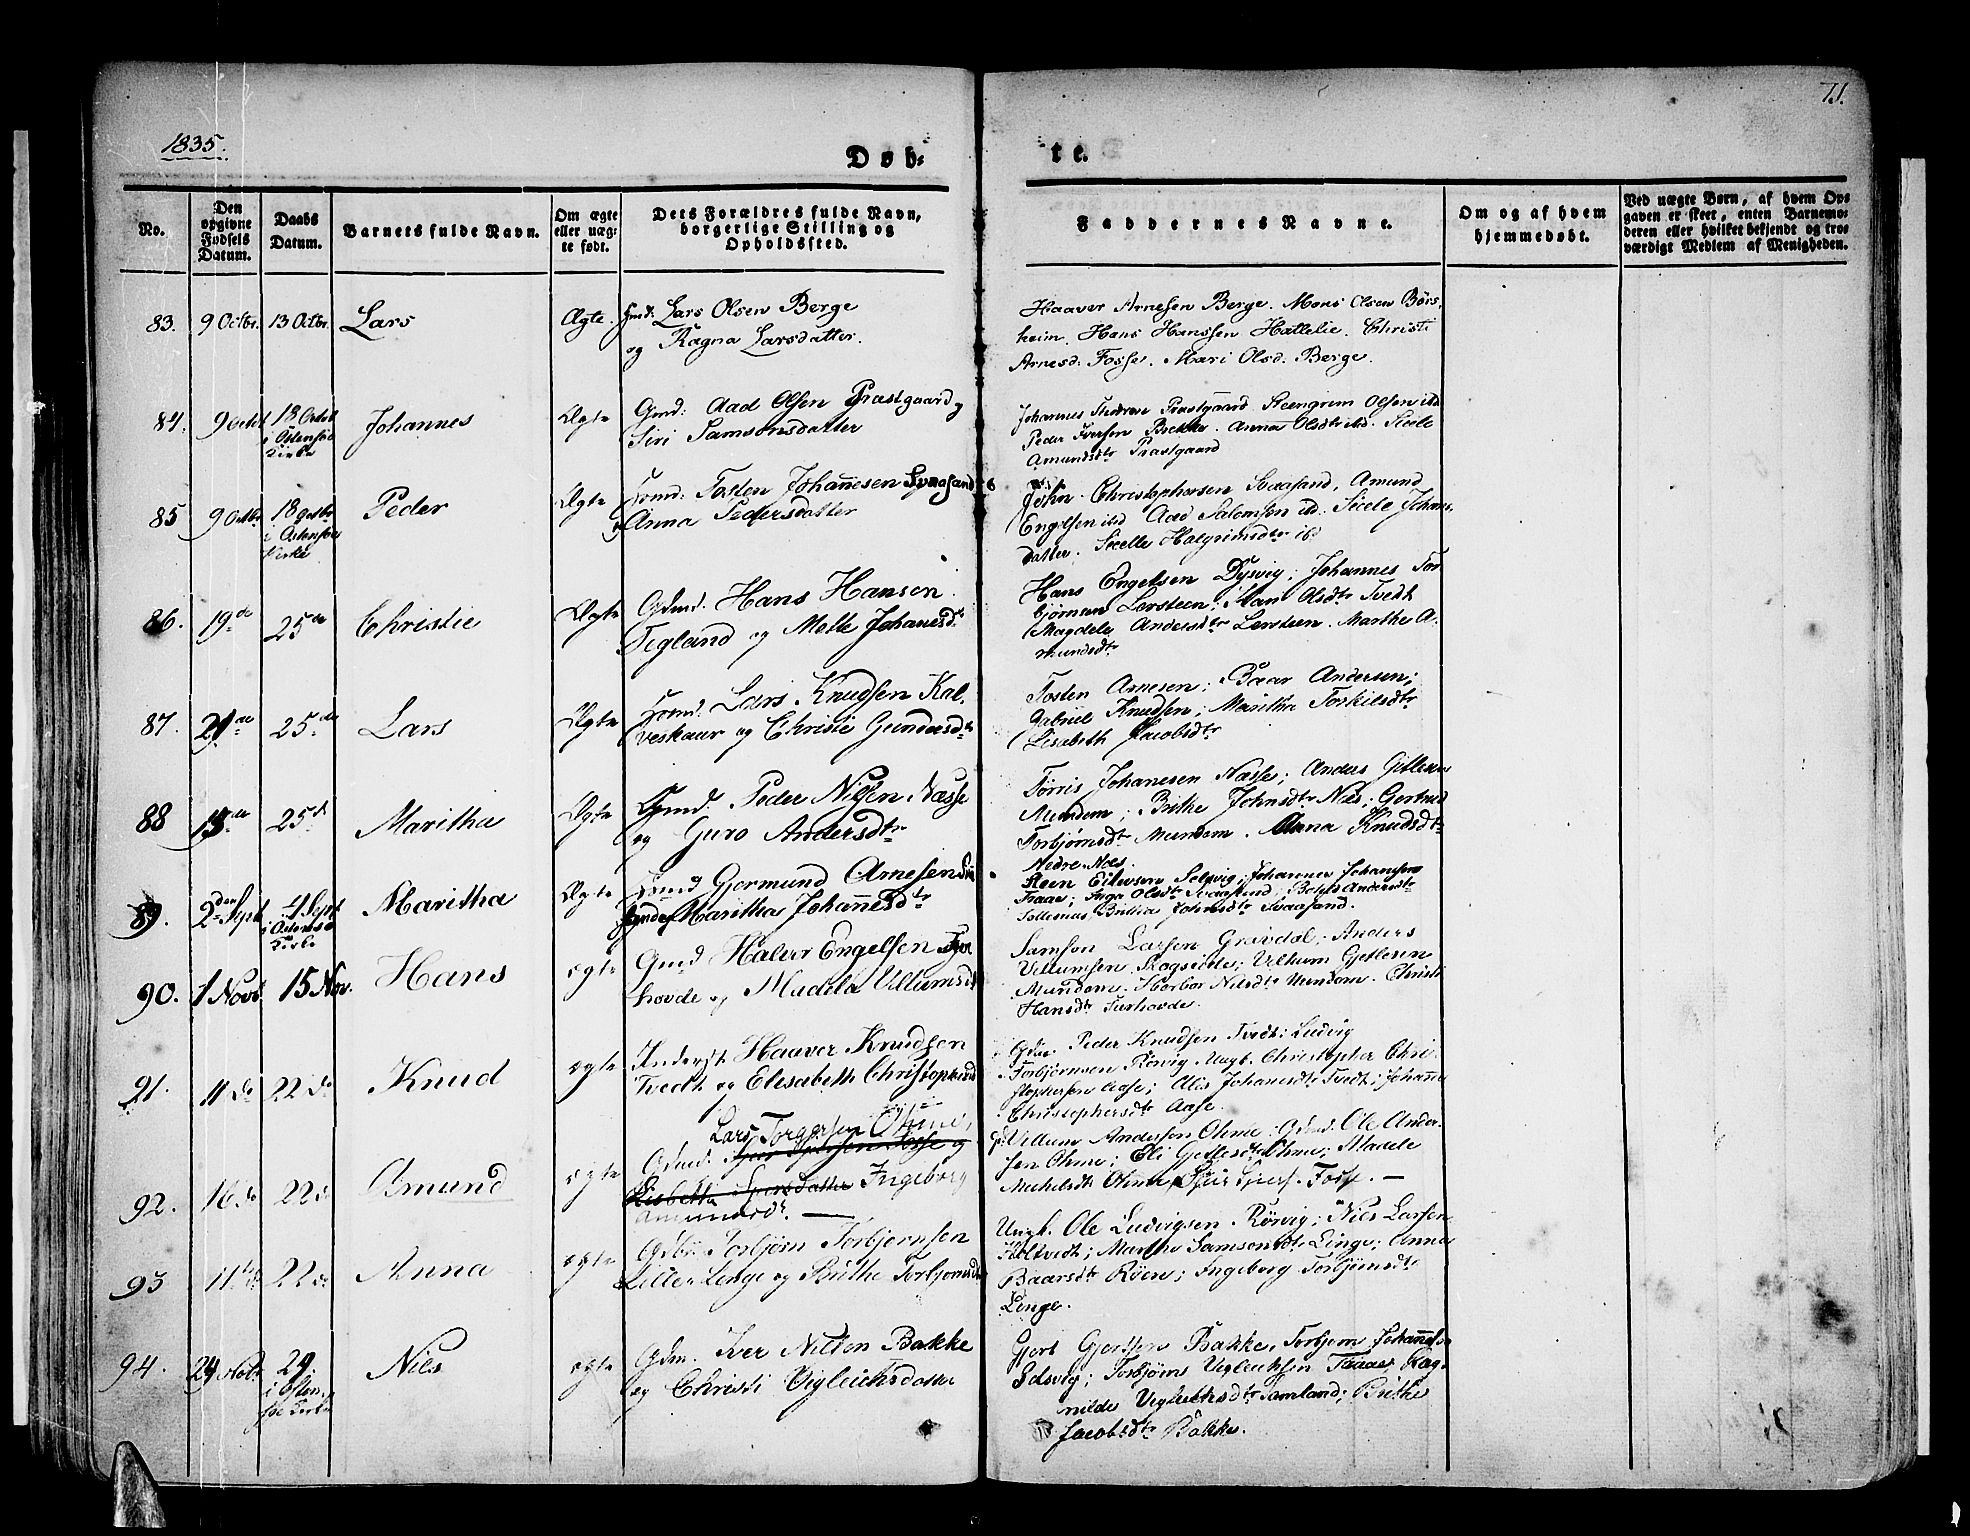 71.
1835.
Døb-
te.
No.
Den opgivne Fødsels Datum.
Daabs Datum.
Barnets fulde Navn.
Om ægte eller uægte født.
Dets Forældres fulde Navn, borgerlige Stilling og Opholdssted.
Faddernes Navne.
Om og af hvem hjemmedøbt.
Ved uægte Børn, af hvem Opgaven er skeet, enten Barnemoderen eller hvilket bekjendt og troværdigt Medlem af Menigheden.
83. 9 Octbr. 13 Octbr. Lars Ægte. Lars Olsen Berge
og Ragna Larsdatter.
Haaver Arnesen Berge. Mons Olsen Børs-
heim. Hans Hanssen Hattelie. Christi
Arnesd: Fosse. Mari Olsd. Berge.
84. 9 Octbr 18 Octob
i Ostensøe
Kirke
Johannes Ægte Gmd: Aad Olsen Præstgaard og
Siri Samsonsdatter
Johannes Præstgaard Steengrim Olsen ibd
Peder Iversen Brekke. Anna Olsdtr ibd. Sicele
Amundsdtr Præstgaard
85 9 Octbr 18 Octbr
i Ostensøe
Kirke
Peder Ægte Gmd: Tosten Johannesen Svaasand
og Anna Pedersdatter
John Christophersen Svaasand, Amund
Engelsen ibd Aad Salomsen ibd: Sicele Johans-
datter. Sicelle Halgrimsdtr ibd
86. 19de 25de Christie Ægte Gdmd. Hans Hansen
Tegland og Mette Johanesdtr
Hans Engelsen Dysvig; Johannes Tor
bjørnsen Lersteen; Mari Olsdtr Tvedt
Magdele Andersdtr Lersteen. Marthe A-
mundsdtr
87. 21de 25de Lars Ægte Gmd. Lars Knudsen Kal-
veskaur og Christie Gundersdtr
Tosten Arnesen; Baar Andersen;
Gabriel Knudsen; Maritha Torkilsdtr
Lisabeth Jacobsdtr
88 25de Maritha Ægte Gmd. Peder Nilsen Næsse
og Guro Andersdtr
Tørris Johanesen Næsse; Anders Gitlesen
Mundem; Brithe Johnsdtr Næs; Gertrud
Torbjørnsdtr Mundem. Anna Knudsdtr
Nedre Næs.
89. 2den Sept 4 Sept
i Ostensø
Kirke
Maritha Ægte Gmd Gjermund Arnesen
Maritha Johannesdtr
Steen Selsvig; Johannes Johansen
Traae; Inga Olsdtr Svaasand;
Brithe Johnsdtr Svaasand.
90. 1 Novb. 15 Nov. Hans ægte Gmd Halver Engelsen
hovde og Madela Villumsdtr
Samson Larsen Gravdal; Anders
Villumsen Skogseide; Vilhum Gitlesen
Mundem. Nilsdtr Mundem. Christi
Hansdtr
91. 11 do 22 do Knud ægte Inderst Haaver Knudsen
Tvedt og Elisabeth Christophersd
Gdm. Peder Knudsen Tvedt; Ludvig
Torbjørnsen Rørvig Ungk. Christopher Chri-
stophersen Aase; Alis Johanesdtr Tvedt; Johanne
Christophersdtr Aase.
92. 16 do 22 do Amund ægte Lars Torgersen
Gdmd. Spersen Fosse og
Lisbetha Spersdatter Ingeborg
Amundsdtr.
Villum Andersen Ohme. Gdmd. Ole Ander-
sen Ohme; Eli Gitlesdtr Ohme; Madele
Michelsdtr Ohme, Spur Spers. Foss. —
93 11te do 22 do Anna ægte Torbjørn Torbjørnsen
Litle Linge og Brithe Torbjørnsdtr
Ungk. Ole Ludvigsen Rørvig; Niels Larsen
Marthe Samsonsdtr Linge; Anna
Baarsdtr Røen; Ingeborg Torbjørnsdtr
Linge.
94. 24 Novb 29.
i Osten-
søe Kirke
Niels ægte Gdm. Iver Nilsen Bakke
og Christi Vigleichsdatter
Gjert Gjertsen Bakke, Torbjørn Johannesen
Torbjørn Vigleichsen Traae; Rag-
nilde Vigleichsdtr Samland; Brithe
Jacobsdtr Bakke.